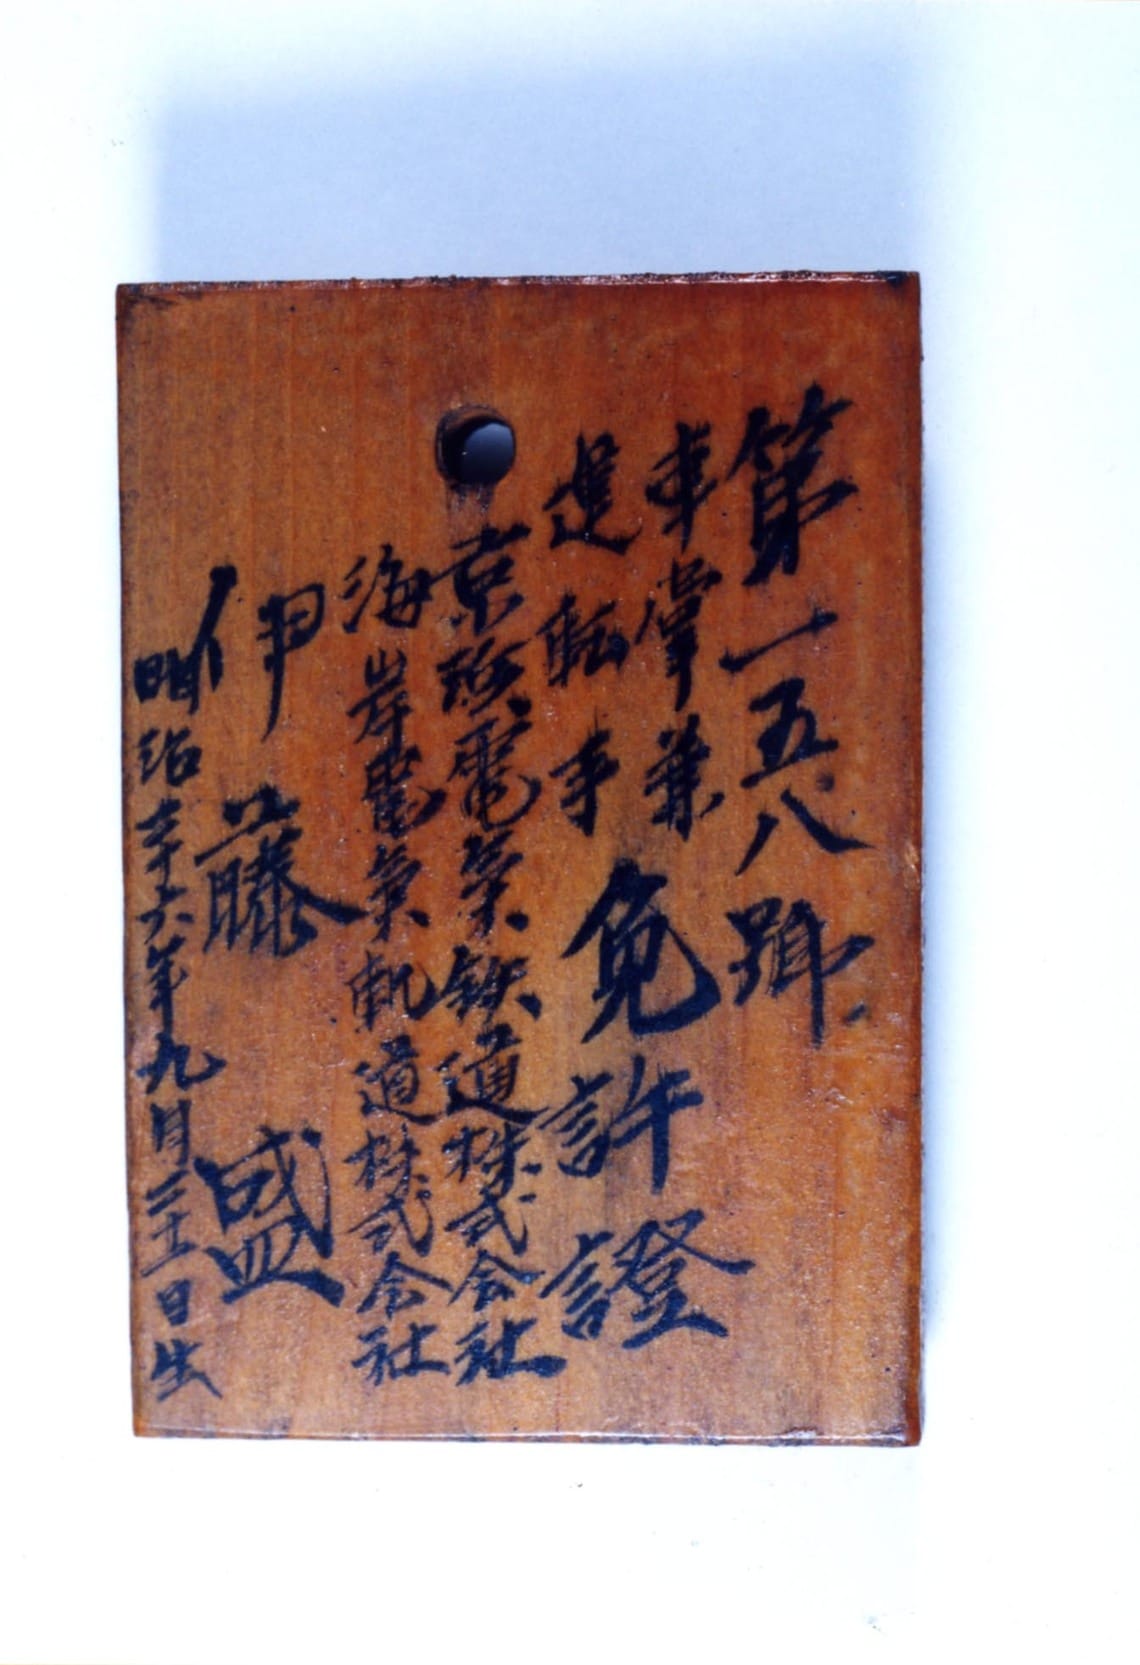 第一五八號
車掌兼
運転手
免許證
京浜電気鉄道株式会社
海岸電気軌道株式会社
伊藤盛
明治三十六年九月二十一日生